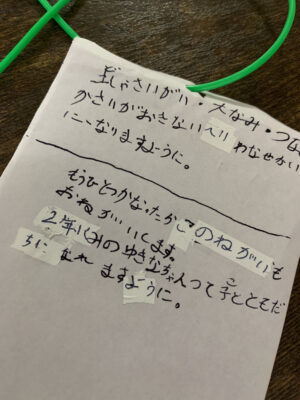 さいがい・大なみ・つな
かさいがおきないへいわなせかい
になりますように。
もうひとつかなったがこのねがいも
おねがいいします。
2年1くみのゆきなちゃんって子とともだ
ちになれますように。